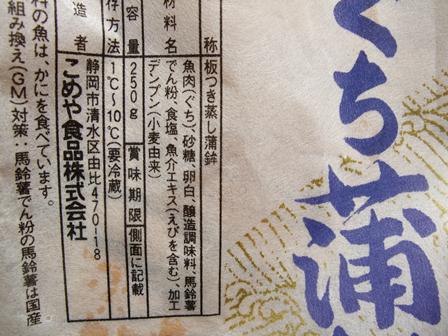 ぐち蒲
称 板つき蒸し蒲鉾
材料名 魚肉(ぐち)、砂糖、卵白、醸造調味料、馬鈴薯
でん粉、食塩、魚介エキス(えびを含む)、加工
デンプン(小麦由来)
容量 250g 賞味期限 側面に記載
存方法 1℃~10℃(要冷蔵)
造者 静岡市清水区由比470-18
こめや食品株式会社
料の魚は、かにを食べています。
組み換え(GM)対策:馬鈴薯でん粉の馬鈴薯は国産